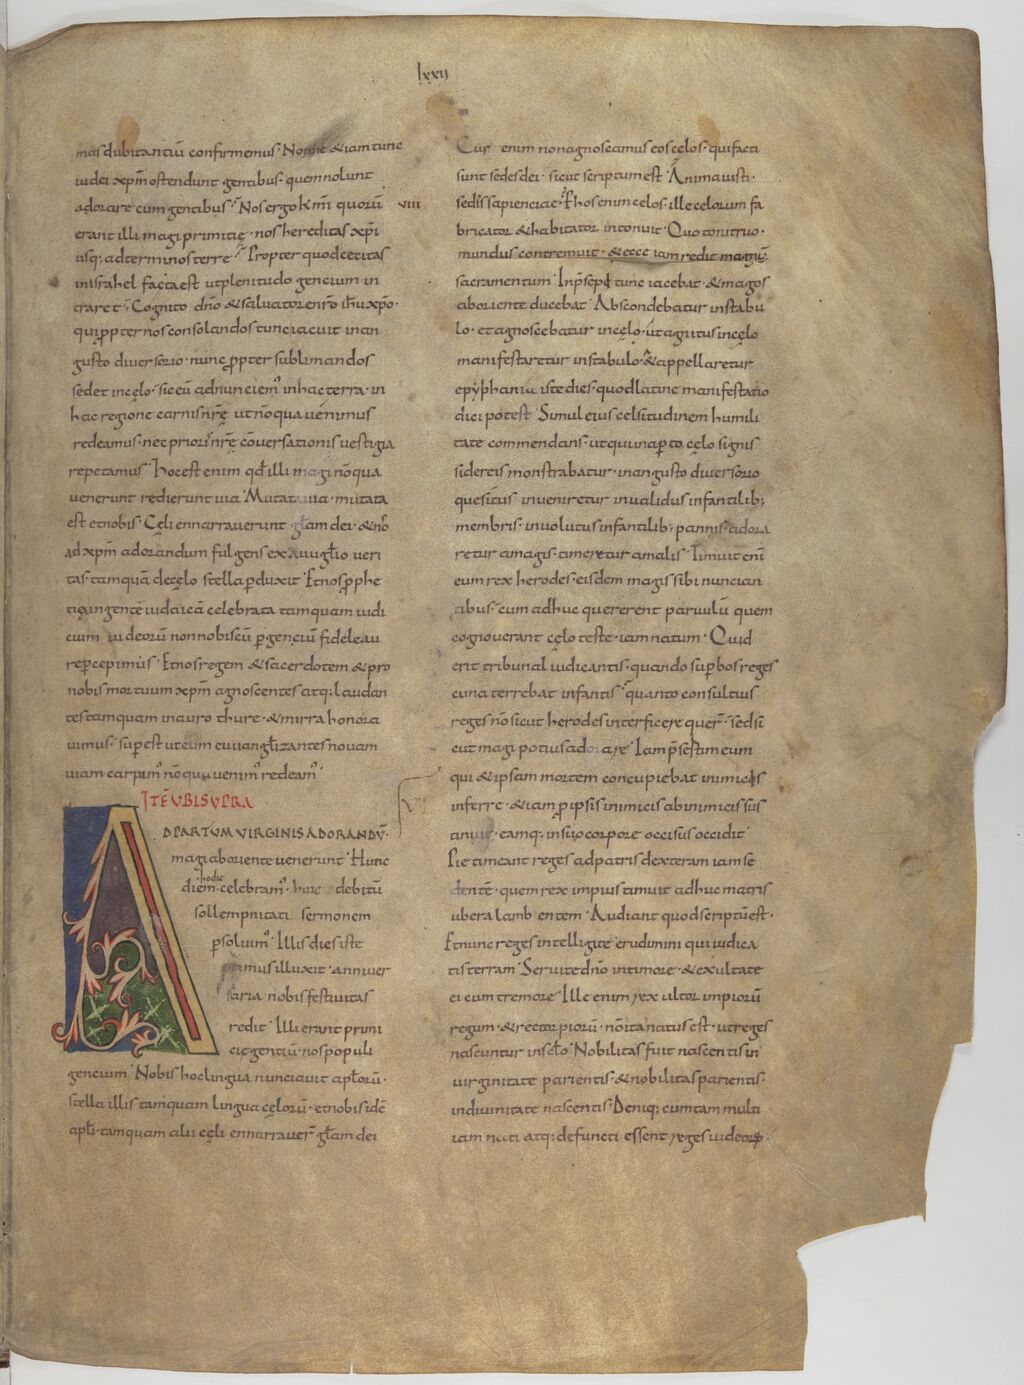 lxxij
mas dubitantiũ confirmemus· Nonne & iam tunc
iudei xp̃m ostendunt gentibus· quem nolunt
adorare cum gentibus· Nos ergo km̃i quorũ
viii
erant illi magi primitię· nos hereditas xp̃i
usq; ad terminos terrę· Propter quod cecitas
in israhel facta est ut plenitudo gentium in
traret· Cognito dño & saluatore nr̃o ih̃u xp̃o·
qui ꝓpter nos consolandos tunc iacuit in an
gusto diuersorio· nunc ꝓpter sublimandos
sedet in cęlo· sic eũ adnunciem' in hac terra· in
hac regione carnis nr̃ę ut nõ qua uenimus
redeamus· nec priori nr̃ę cõuersationis uestigia
repetamus· Hoc est enim qđ illi magi nõ qua
uenerunt redierunt uia· Mutata uia· mutata
est et nobis· Cęli ennarrauerunt gl̃am dei· & nos
ad xp̃m adorandum fulgens ex æuuglĩo ueri
tas· tamquã de cęlo stella ꝑduxit· Et nos ꝓphe
tię in gente iudaicã celebrata tamquam iudi
cium iudeorũ non nobiscũ ꝑ gentiũ fidele au
re percepimus· Et nos regem & sacerdotem & pro
nobis mortuum xp̃m agnoscentes atq; laudan
tes tamquam in auro thure· & mirra honora
uimus· supest ut eum euuangl̃izantes nouam
uiam carpam' nõ qua uenim' redeam'
ITẼ VBI SVPRA
AD PARTVM VIRGINIS ADORANDV̄·
magi ab oriente uenerunt· Hunc
hodie
diem celebram'· huic debitũ
sollempnitati sermonem
ꝑsoluim'· Illis dies iste
primus illuxit· anniuer
saria nobis festiuitas
redit· Illi erant primi
cię gentiũ· nos populi
gentium· Nobis hoc lingua nunciauit apl̃orũ·
stella illis tamquam lingua cęlorũ· et nobis idẽ
apl̃i· tamquam alii cęli ennarrauer̃ gl̃am dei
Cur enim non agnoscamus eos cęlos· qui facti
sunt sedes dei· sicut scriptum est· Anima iusti·
sedes sapienciae· P hos enim celos· ille celorum fa
bricator & habitator intonuit· Quo tonitruo·
mundus contremuit· & ecce iam redit magnũ
sacramentum· In p̃sepe tunc iacebat· & magos
ab oriente ducebat· Abscondebatur in stabu
lo· et agnoscebatur in cęlo· ut agnitus in cęlo
manifestaretur in stabulo· & appellaretur
epyphania iste dies· quod latine manifestatio
dici potest· Simul eius celsitudinem humili
tate commendans· ut qui in aperto cęlo signis
sidereis monstrabatur· in angusto diuersorio
quesitus inueniretur inualidus infantilib;
membris· inuolutus infantilib; pannis· adora
retur a magis· timeretur a malis· Timuit enĩ
eum rex herodes· eisdem magis sibi nuncian
tibus· cum adhuc quererent paruulũ quem
cognouerant cęlo teste· iam natum· Quid
erit tribunal iudicantis· quando suꝑbos reges
cuna terrebat infantis· quanto consultius
reges nõ sicut herodes interficere quer̃· sed si
cut magi potius adorare· Iam p̃sertim eum
qui & ipsam mortem concupiebat inimicis
inferre· & iam ꝑ ipsis inimicis ab inimicis sus
tinuit· eamq; in suo corpore occisus occidit·
Pie timeant reges ad patris dexteram iam se
dentẽ· quem rex impius timuit adhuc matris
ubera lambentem· Audiant quod scriptũ est·
Et nunc reges intelligite erudimini qui iudica
tis terram· Seruite dño in timore· & exultate
ei cum tremore· Ille enim rex ultor impiorũ
regum· & rector piorũ· nõ ita natus est· ut reges
nascuntur in sc̃lo· Nobilitas fuit nascentis in
uirginitate parientis· & nobilitas parientis·
in diuinitate nascentis· Deniq; cum tam multi
iam nati atq; defuncti essent reges iudeorꝝ·